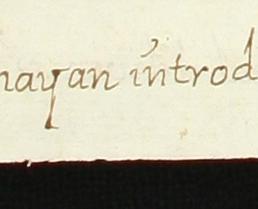 hayan introd